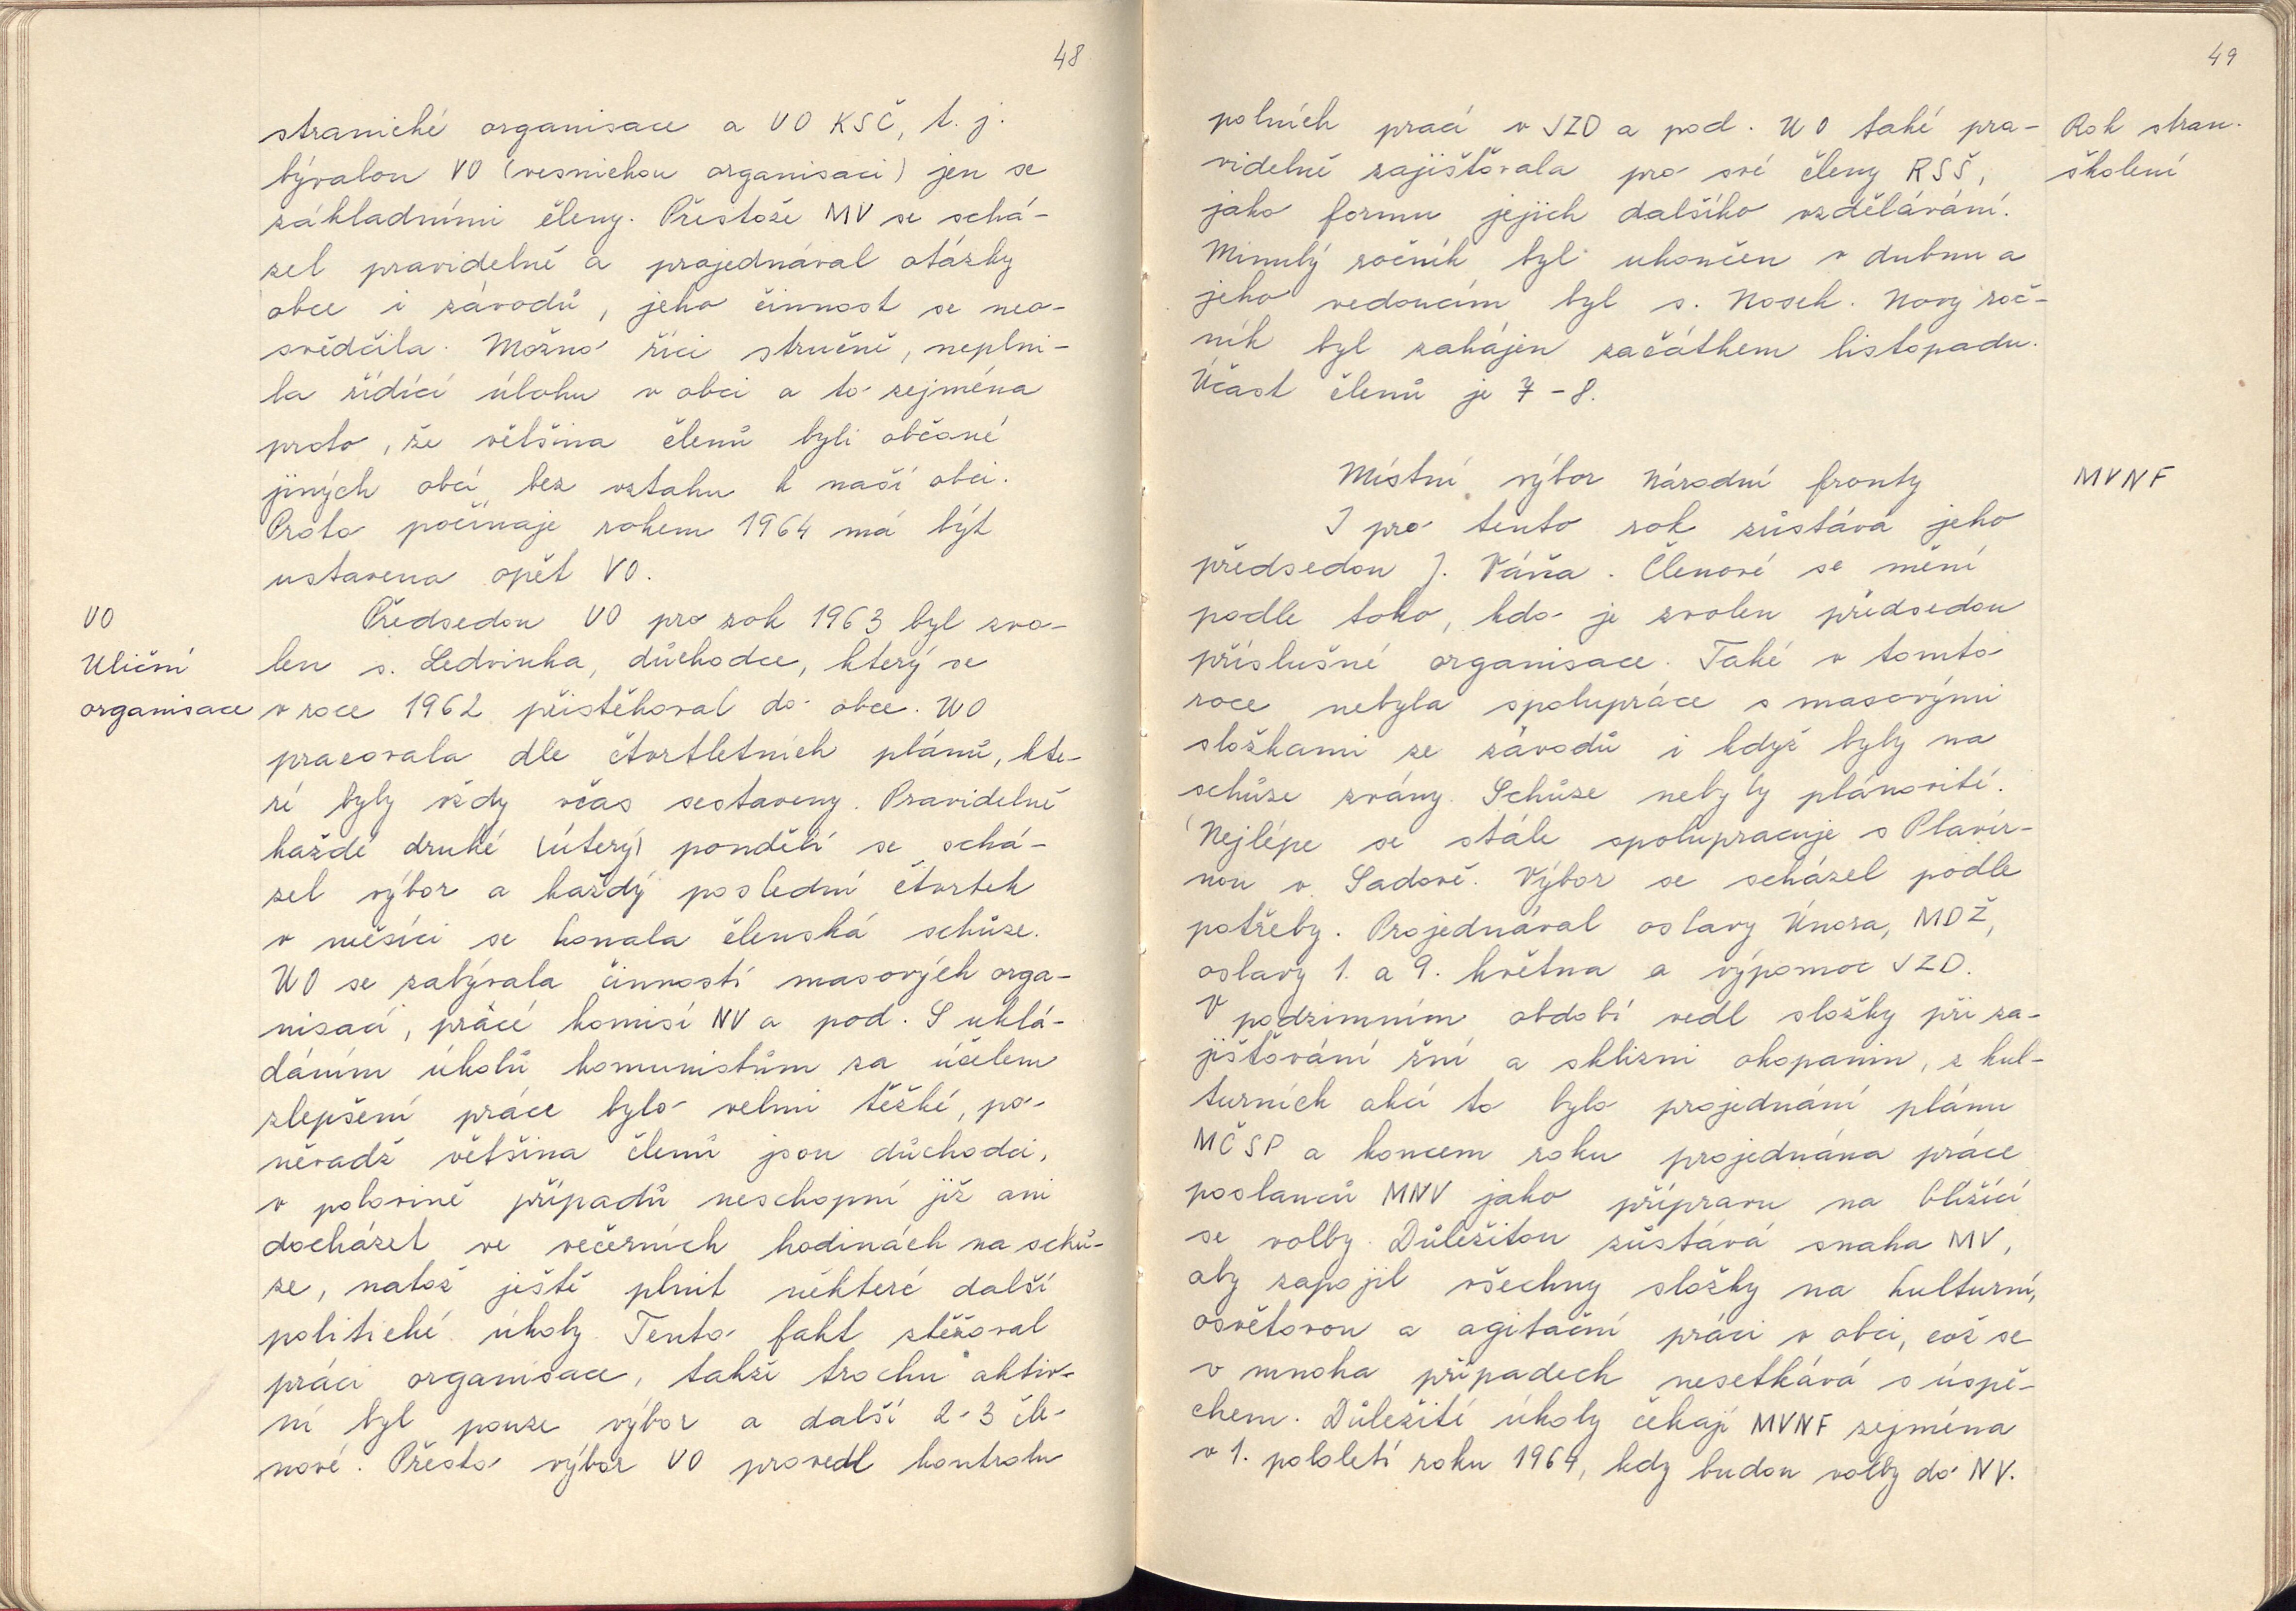 48
stranické organisace a UO KSČ, t. j.
bývalou VO (vesnickou organisaci) jen se
základními členy. Přestože MV se schá-
zel pravidelně a projednával otázky
obce i závodů, jeho činnost se neo-
svědčila. Možno říci stručně, neplni-
la řídící úlohu v obci a to zejména
proto, že většina členů byli občané
jiných obcí bez vztahu k naší obci.
Proto počínaje rokem 1964 má být
ustavena opět VO.
UO
Uliční
organisace
Předsedou UO pro rok 1963 byl zvo-
len s. Ledvinka, důchodce, který se
v roce 1962 přistěhoval do obce. UO
pracovala dle čtvrtletních plánů, kte-
ré byly vždy včas sestaveny. Pravidelně
každé druhé (úterý) pondělí se schá-
zel výbor a každý poslední čtvrtek
v měsíci se konala členská schůze.
UO se zabývala činností masových orga-
nisací, práce komisí NV a pod. S uklá-
dáním úkolů komunistům za účelem
zlepšení práce bylo velmi těžké, po-
něvadž většina členů jsou důchodci,
v polovině případů neschopní již ani
docházet ve večerních hodinách na schů-
ze, natož ještě plnit některé další
politické úkoly. Tento fakt ztěžoval
práci organisace, takže trochu aktiv-
ní byl pouze výbor a další 2-3 čle-
nové. Přesto výbor UO provedl kontrolu
49
polních prací v JZD a pod. UO také pra-
videlně zajišťovala pro své členy RSŠ,
jako formu jejich dalšího vzdělávání.
Minulý ročník byl ukončen v dubnu a
jeho vedoucím byl s. Nosek. Nový roč-
ník byl zahájen začátkem listopadu.
Účast členů je 7-8.
Rok stran.
školení
Místní výbor Národní fronty
MVNF
I pro tento rok zůstává jeho
předsedou J. Váňa. Členové se mění
podle toho, kdo je zvolen předsedou
příslušné organisace. Také v tomto
roce nebyla spolupráce s masovými
složkami ze závodů i když byly na
schůze zvány. Schůze nebyly plánovité.
Nejlépe se stále spolupracuje s Plavír-
nou v Sadově. Výbor se scházel podle
potřeby. Projednával oslavy Února, MDŽ,
oslavy 1. a 9. května a výpomoc JZD.
V podzimním období vedl složky při za-
jišťování žní a sklizni okopanin, z kul-
turních akcí to bylo projednání plánu
MČSP a koncem roku projednána práce
poslanců MNV jako přípravu na blížící
se volby. Důležitou zůstává snaha MV,
aby zapojil všechny složky na kulturní,
osvětovou a agitační práci v obci, což se
v mnoha případech nesetkává s úspě-
chem. Důležité úkoly čekají MVNF zejména
v 1. pololetí roku 1964, kdy budou volby do NV.